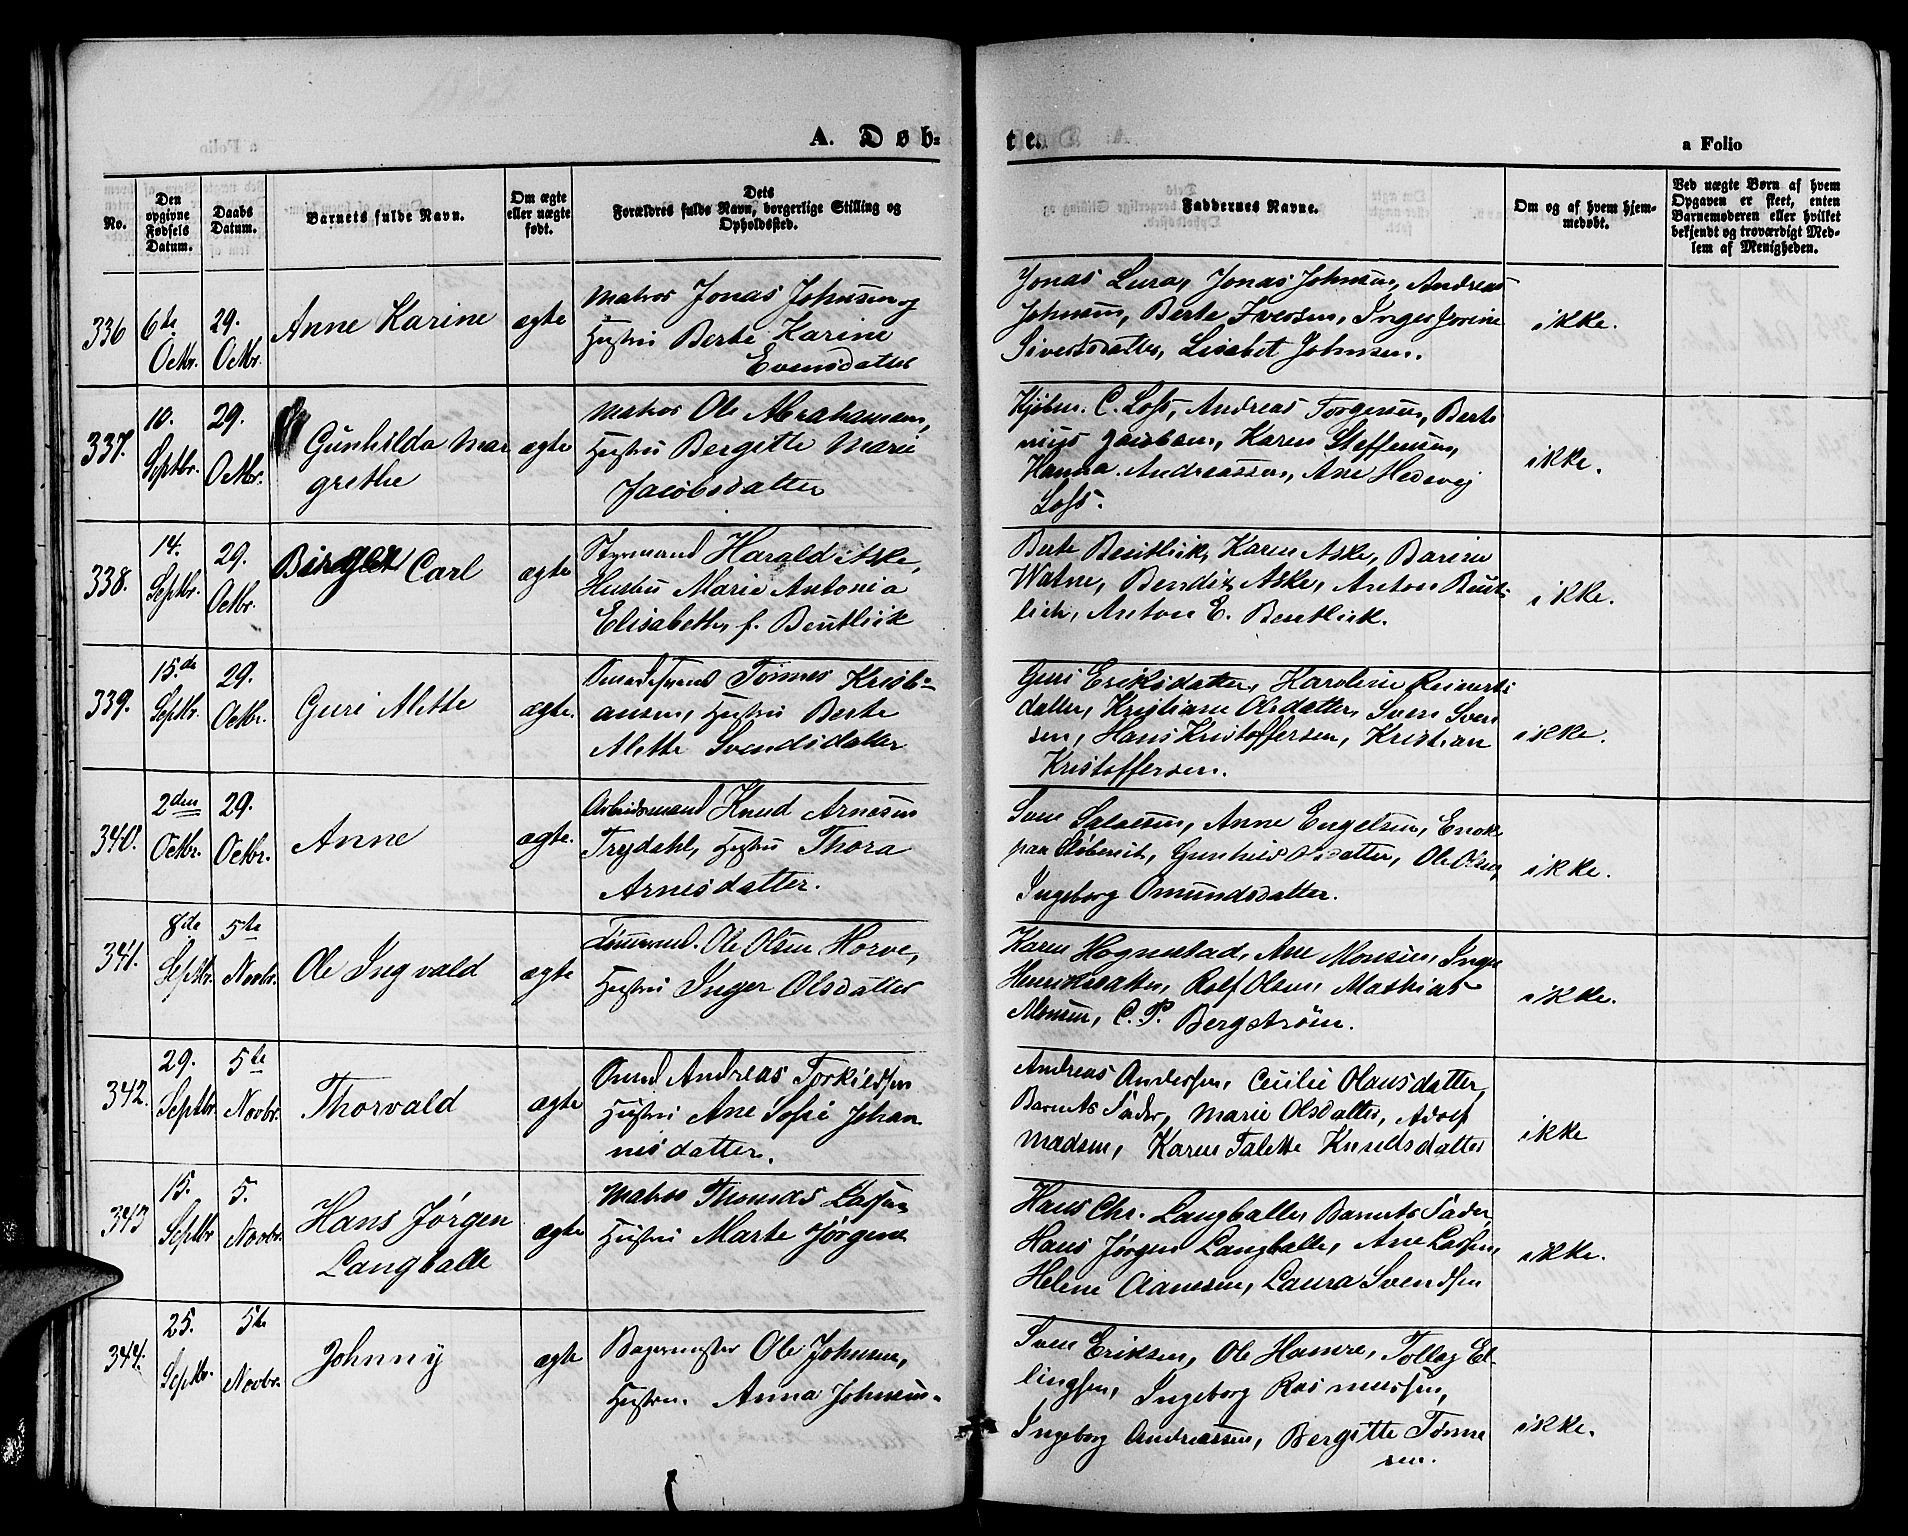 A. Døb-
te.
a Folio
No.
Den opgivne Fødsels Datum.
Daabs Datum.
Barnets fulde Navn.
Om ægte eller uægte født.
Dets Forældres fulde Navn, borgerlige Stilling og Opholdssted.
Faddernes Navne.
Om og af hvem hjemmedøbt.
Ved uægte Børn af hvem Opgaven er skeet, enten Barnemoderen eller hvilket bekjendt og troværdigt Medlem af Menigheden.
336
6te Octbr.
29. Octbr.
Anne Karine
ægte
Matros Jonas Johnsen og
Hustru Berte Karine
Evensdatter
Jonas Lura, Jonas Johnsen, Andreas
Johnsen, Berte Iversen, Inger Jorine
Sivertsdatter, Lisabet Johnsen.
ikke.
337.
10. Septbr.
29. Octbr.
Gunhilda Mar
grethe
ægte
Matros Ole Abrahamsen,
Hustru Bergitte Marie
Jacobsdatter
Kjøbm. C. Loss, Andreas Torgersen, Bert
nius Jacobsen, Karen Steffensen,
Hanna Andreassen, Ane Hedevig
Loss.
ikke.
338.
14. Septbr.
29. Octbr.
Birger Carl
ægte
Styrmand Harald Aske,
Hustru Marie Antonia
Elisabeth, f. Bentlick
Berte Bentlick, Karen Aske, Barine
Watne, Bendix Aske, Anton Bent-
lick, Anton E. Bentlick.
ikke.
339.
15.de Septbr.
29. Octbr.
Guri Alette
ægte.
Tønnes Kristi-
ansen, Hustru Berte
Alette Svendsdatter
Guri Eriksdatter, Karoline Reinerts
datter, Kristiane Olsdatter, Sven Sven
sen, Hans Kristoffersen, Kristian
Kristoffersen.
ikke.
340.
2den Octbr.
29. Octbr.
Anne
ægte.
Arbeidsmand Knud Arnesen
Trydahl, Hustru Thora
Arnesdatter.
Sven Salvesen, Anne Engelsen, Enok
paa Gunhild Olsdatter, Ole Olsen,
Ingeborg Omundsdatter.
ikke.
341.
8de Septbr.
5te Novbr.
Ole Ingvald
ægte
Tømmermd. Ole Olsen Horve,
Hustru Inger Olsdatter
Karen Hognestad, Ane Monsen, Inger
Henriksdatter, Rolf Olsen, Mathias
Monsen, C. P. Bergstrøm.
ikke.
342.
29. Septbr.
5te Novbr.
Thorvald
ægte
Andreas Torkildsen
Hustru Ane Sofie Johan
nesdatter.
Andreas Andersen, Cecilie Olausdatter,
Barnets Fader, Marie Olsdatter, Adolf
Madsen, Karen Talette Knudsdatter
ikke
343
15. Septbr
5. Novbr.
Hans Jørgen
Langballe
ægte
Matros Thomas Lassen
Hustru Marte Jørgene
Hans Chr. Langballe, Barnets Fader,
Hans Jørgen Langballe, Ane Lassen,
Helene Aanesen, Laura Svendsen
ikke.
344.
25. Septbr.
5te Novbr.
Johnny
ægte
Bagermester Ole Johnsen,
Hustru. Anna Johnsen.
Sven Eriksen, Ole Hamre, Tollag El-
lingsen, Ingeborg Rasmussen,
Ingeborg Andreassen, Bergitte Tønne
sen.
ikke.